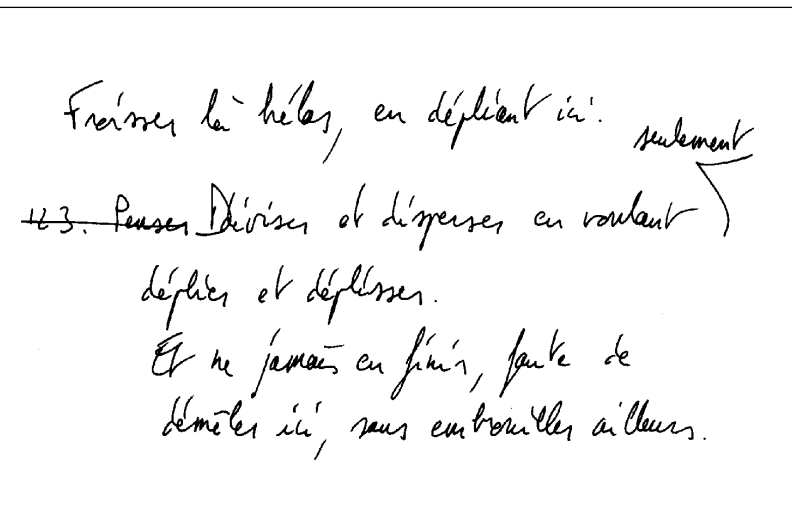 Froisser là hélas, en dépliant ici.
seulement
123. Penser Diviser et disperser en voulant
déplier et déplisser.
Et ne jamais en finir, faute de
démêler ici, sans embrouiller ailleurs.